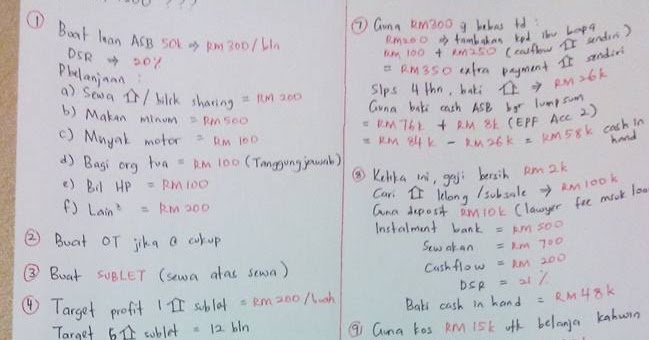 ① Buat loan ASB 50k ⇒ RM300/bln
DSR ⇒ 20%
Pbelanjaan :
a) Sewa /bilik sharing = RM 200
b) Makan minum = RM500
c) Mnyak motor = RM 100
d) Bagi org tua = RM 100 (Tanggungjawab)
e) Bil HP = RM100
f) Lain² = RM 200
② Buat OT jika @ cukup
③ Buat SUBLET (sewa atas sewa)
④ Target profit 1 sublet = RM200/buah
Target 5 sublet = 12 bln
⑦ Guna RM300 yg bebas td :
RM200 ⇒ tambahan kpd ibu bapa
RM 100 + RM250 (cashflow sendiri)
= RM350 extra payment sendiri
Slps 4 thn, baki ⇒ RM26k
Guna baki cash ASB byr lumpsum
= RM76k + RM 8k (EPF Acc 2)
= RM 84k - RM26k = RM58k cash in hand
⑧ Ketika ini, gaji bersih RM2k
Cari lelong/subsale ⇒ RM100k
Guna deposit RM10k (lawyer fee msuk loa
Instalment bank = RM 500
Sewakan = RM 700
Cashflow = RM 200
DSR = 21%
Baki cash in hand = RM48k
⑨ Guna kos RM 15k utk belanja kahwin